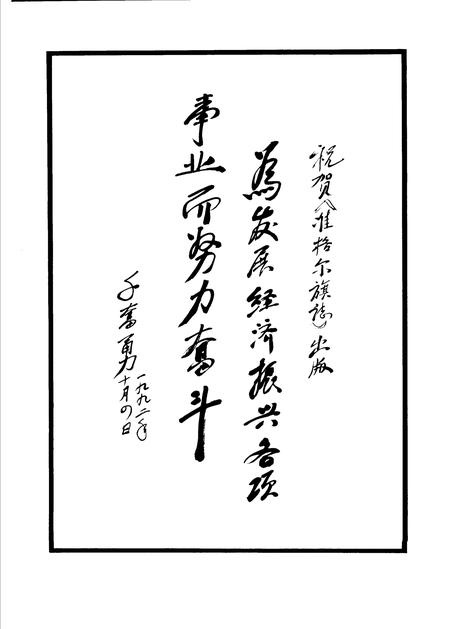 祝贺《准格尔旗志》出版
为发展经济振兴各项
事业而努力奋斗
千奋勇
一九九二年
十月四日